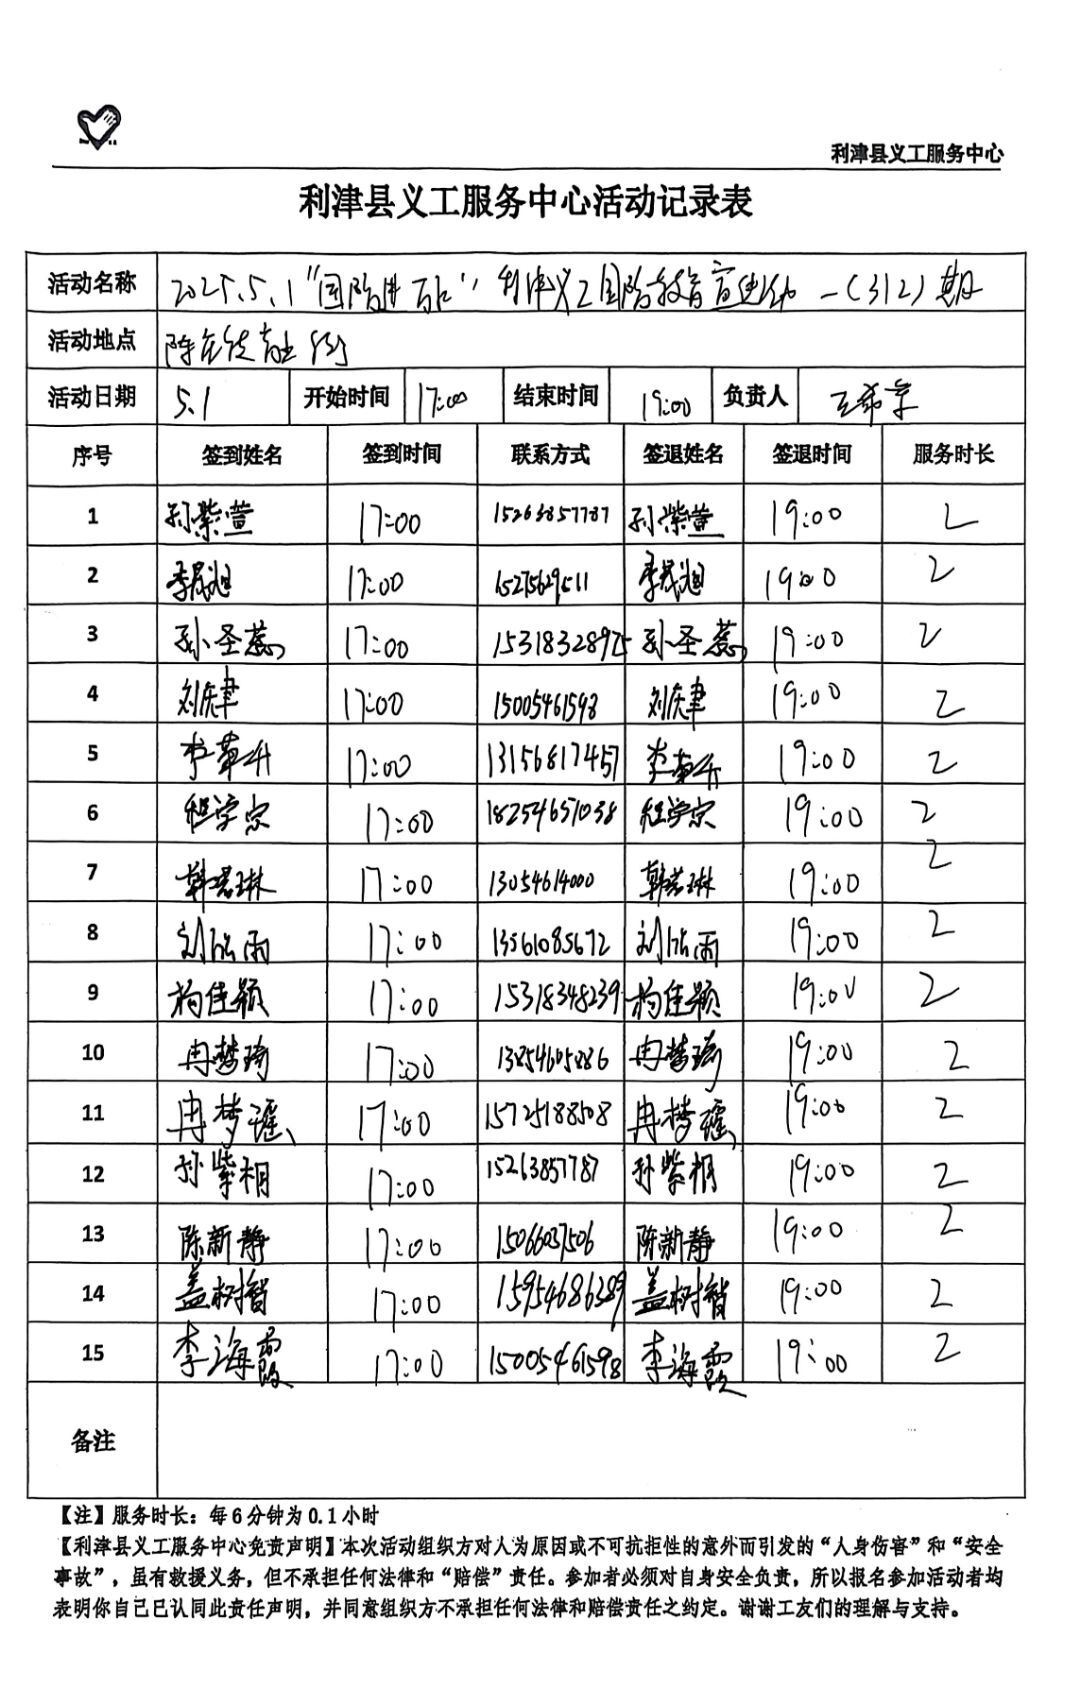 利津县义工服务中心
利津县义工服务中心活动记录表
活动名称 2025.5.1“国防进万家”利津义工国防教育宣传活动 —(312)期
活动地点
活动日期 5.1 开始时间 17:00 结束时间 19:00 负责人
序号 签到姓名 签到时间 联系方式 签退姓名 签退时间 服务时长
1 孙紫萱 17:00 15263857787 孙紫萱 19:00 2
2 李晟旭 17:00 15275629511 李晟旭 19:00 2
3 孙圣蕊 17:00 15318328925 孙圣蕊 19:00 2
4 刘庆聿 17:00 15005461598 刘庆聿 19:00 2
5 李華升 17:00 13156817457 李華升 19:00 2
6 程学宗 17:00 18254651038 程学宗 19:00 2
7 韩若琳 17:00 13054614000 韩若琳 19:00 2
8 17:00 13561085672 19:00 2
9 杨佳颖 17:00 15318348239 杨佳颖 19:00 2
10 冉梦琦 17:00 冉梦琦 19:00 2
11 冉梦瑶 17:00 15725188508 冉梦瑶 19:00 2
12 孙紫桐 17:00 15263857787 孙紫桐 19:00 2
13 陈新静 17:00 15066037506 陈新静 19:00 2
14 盖树智 17:00 15954686389 盖树智 19:00 2
15 李海霞 17:00 15005461598 李海霞 19:00 2
备注
【注】服务时长：每6分钟为0.1小时
【利津县义工服务中心免责声明】本次活动组织方对人为原因或不可抗拒性的意外而引发的“人身伤害”和“安全
事故”，虽有救援义务，但不承担任何法律和“赔偿”责任。参加者必须对自身安全负责，所以报名参加活动者均
表明你自己已认同此责任声明，并同意组织方不承担任何法律和赔偿责任之约定。谢谢工友们的理解与支持。